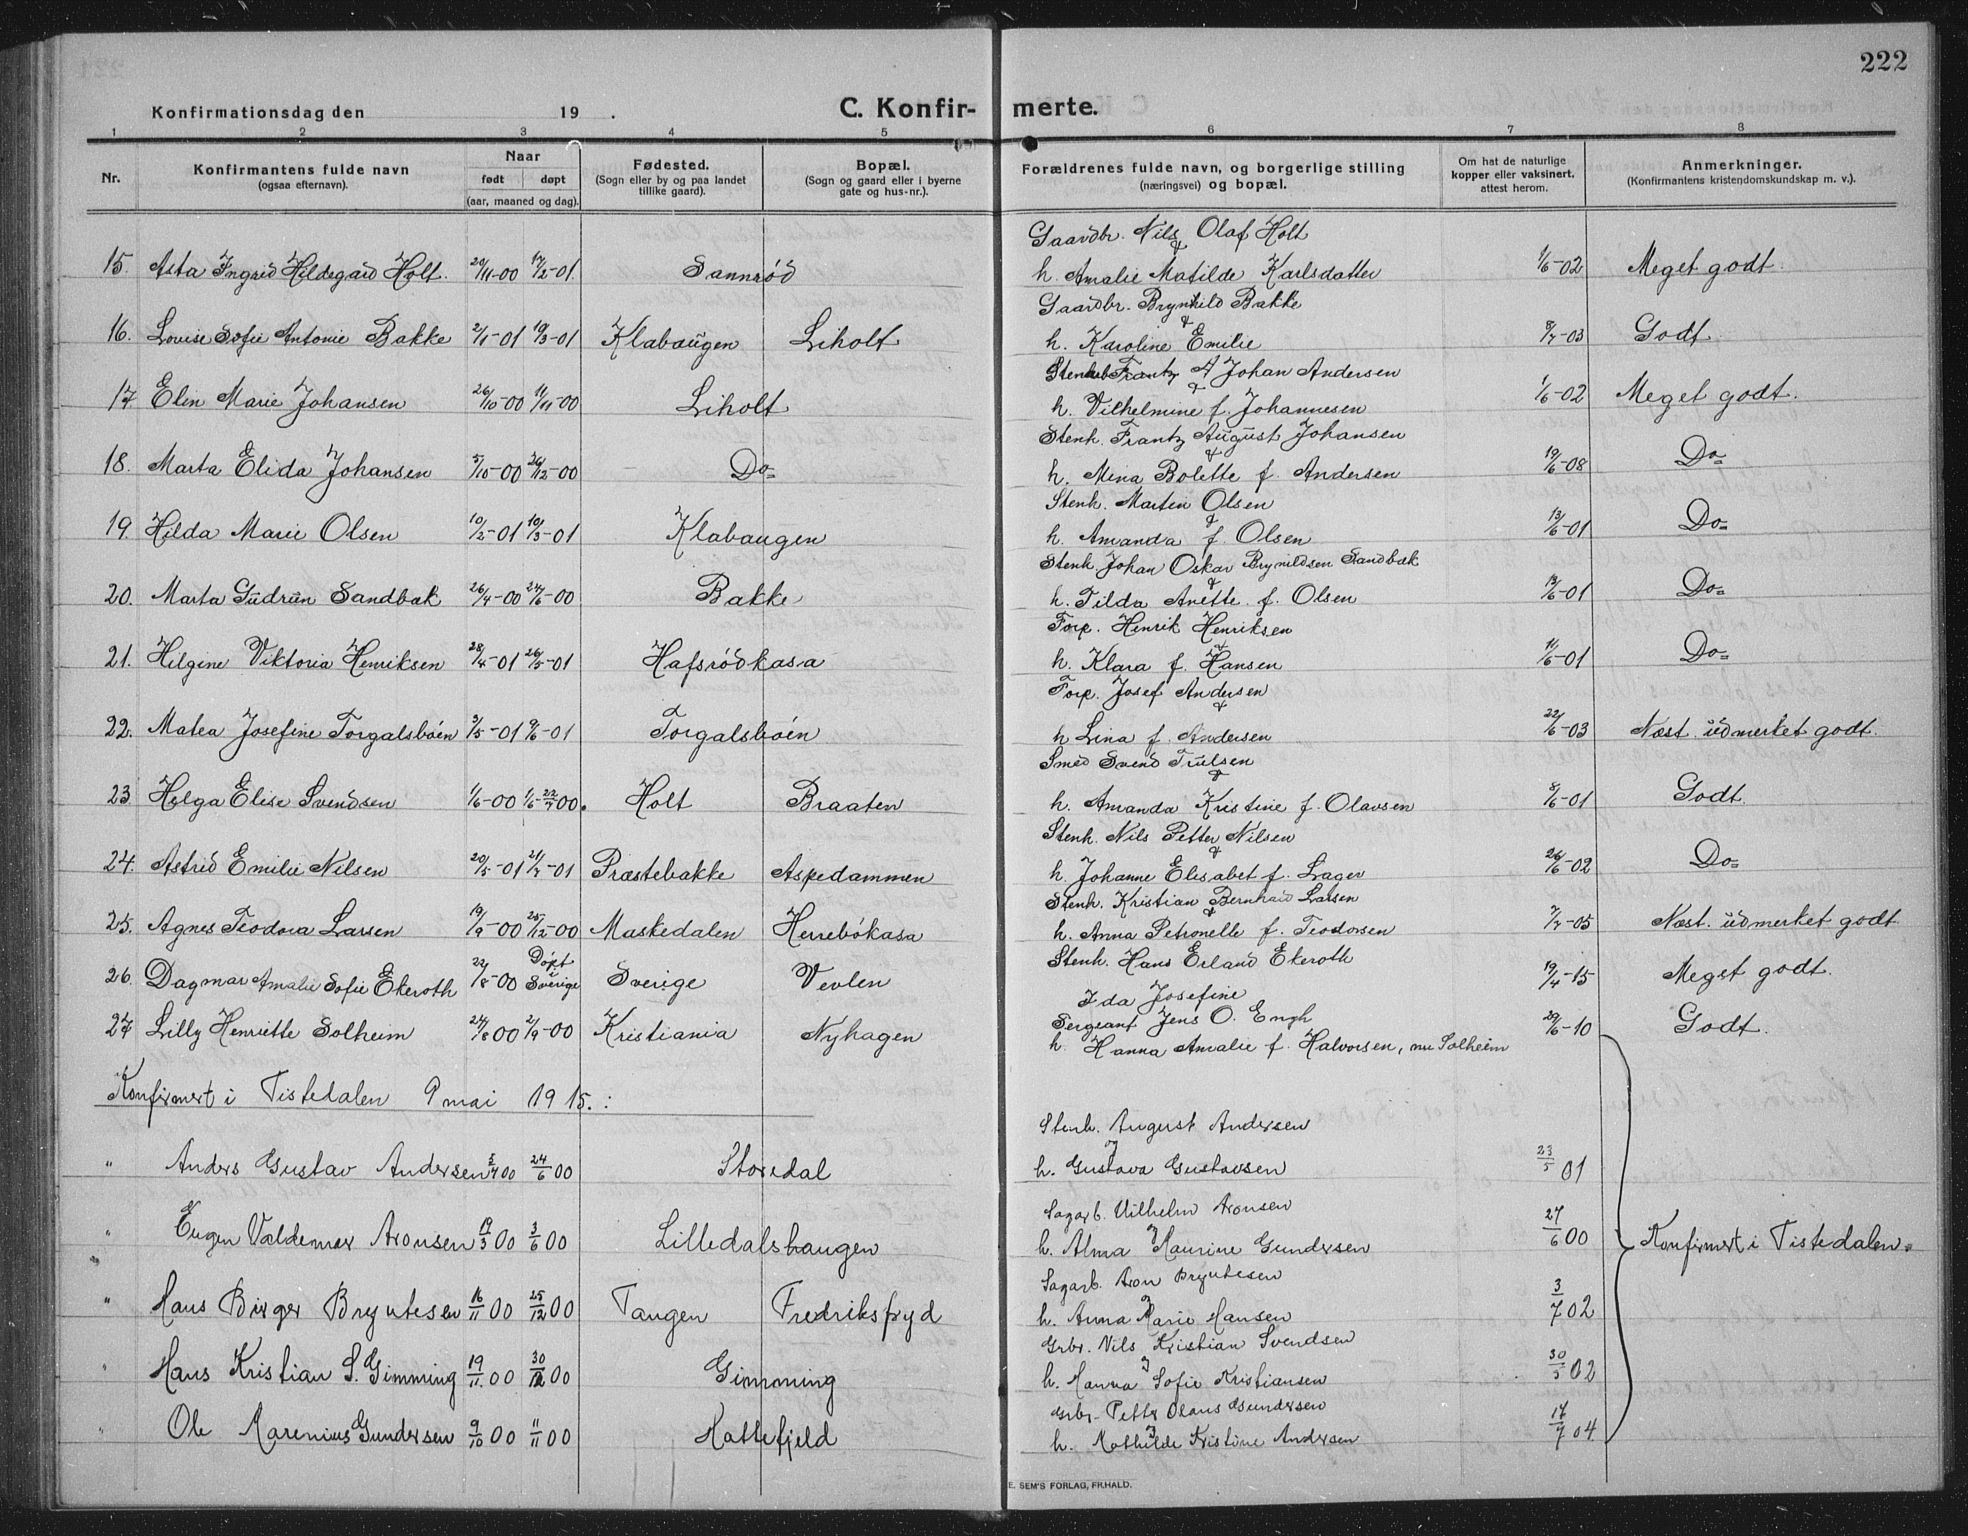 222
Konfirmationsdag den 19 .
C. Konfir- merte.
1 2 3 4 5 6 7 8
Nr. Konfirmantens fulde navn (ogsaa efternavn). Naar født døpt (aar, maaned og dag). Fødested. (Sogn eller by og paa landet tillike gaard). Bopæl. (Sogn og gaard eller i byerne gate og hus-nr.). Forældrenes fulde navn, og borgerlige stilling (næringsvei) og bopæl. Om hat de naturlige kopper eller vaksinert, attest herom. Anmerkninger. (Konfirmantens kristendomskundskap m. v.).
Gaardbr. Nils Olaf Holt
&
15. Asta Ingrid Hildegard Holt. 20/11-00 17/2-01. Sannrød h. Amalie Matilde Karlsdatter 1/6-02 Meget godt.
Gaardbr. Brynhild Bakke
&
16. Lovise Sofie Antonie Bakke 2/1-01 19/3-01 Klabaugen Liholt h. Karoline Emilie 8/7-03 Godt.
Frantz A Johan Andersen
&
17 Elin Marie Johansen 26/10-00 11/11-00 Liholt h. Vilhelmine f. Johannesen 1/6-02 Meget godt.
Stenh. Frantz August Johansen
&
18. Marta Elida Johansen 5/10-00 26/12-00 Do= h. Mina Bolette f. Andersen 19/6-08 Do=
Stenh. Martin Olsen
&
19. Hilda Marie Olsen 10/2-01 10/3-01 Klabaugen h. Amanda f. Olsen 13/6-01 Do=
Stenh. Johan Oskar Brynildsen Sandbæk
&
20. Marta Gudrun Sandbæk 26/4-00 24/6-00 Bakke h. Tilda Anette f. Olsen /6-01 Do=
Forp. Henrik Henriksen
&
21. Hilgine Viktoria Henriksen 28/4-01 26/5-01 Hafsrødkasa h. Klara f. Hansen 11/6-01 Do=
Forp. Josef Andersen
&
22. Matea Josefine Torgalsbøen 3/5-01 9/6-01 Torgalsbøen h Lina f. Andersen 22/6-03 Næst. udmerket godt.
Smed Svend Trulsen
&
23 Helga Elise Svendsen 1/6-00 1/6-22/7 00. Holt Braaten h. Amanda Kristine f. Olavsen 8/6-01 Godt.
Stenh. Nils Petter Nilsen
&
24. Astrid Emilie Nilsen 20/5-01 21/7-01 Præstebakke Aspedammen h. Johanne Elisabet f. Lager 26/6-02 Do=
Stenh. Kristian Bernhard Larsen
&
25. Agnes Teodora Larsen 19/9-00 25/12-00 Maskedalen Herrebøkasa h. Anna Petronelle f. Teodorsen 7/7-05 Næst. udmerket godt
Stenh. Hans Erland Ekeroth
26. Dagmar Amalie Sofie Ekeroth 22/8-00 Døpt i Sverige Sverige Vevlen Ida Josefine 19/4-15 Meget godt.
Sergeant Jens O. Engh
27 Lilly Henriette Solheim 24/8 00 2/9-00 Kristiania Nyhagen h. Hanna Amalie f. Halvorsen, nu Solheim 29/6-10 Godt.
Konfirmert i Tistedalen 9 mai 1915. :
Stenh. August Andersen
og
" Anders Gustav Andersen 5/4 00 24/6 00 Storedal h. Gustava Gustavsen 23/5 01
Sagarb. Vilhelm Aronsen
og
" Eugen Valdemar Aronsen 19/3 00 3/6 00 Lilledalshaugen h. Alma Maurine Gundersen 27/6 00 Konfirmert i Tistedalen.
Sagarb. Aron Bryntesen
og
" Hans Birger Bryntesen 16/11 00 25/12 00 Tangen Fredriksfryd h. Anna Marie Hansen 3/7 02
Grbr. Nils Kristian Svendsen
og
" Hans Kristian S. Gimming 19/11. 00 30/12 00 Gimming h. Hanna Sofie Kristiansen 30/5 02
Grbr. Petter Olaus Gundersen
og
" Ole Marenius Gundersen 9/10 00 11/11 00 Hattefjeld h. Mathilde Kristine Andersen 17/7 04
E. SEM'S FORLAG, FR.HALD.